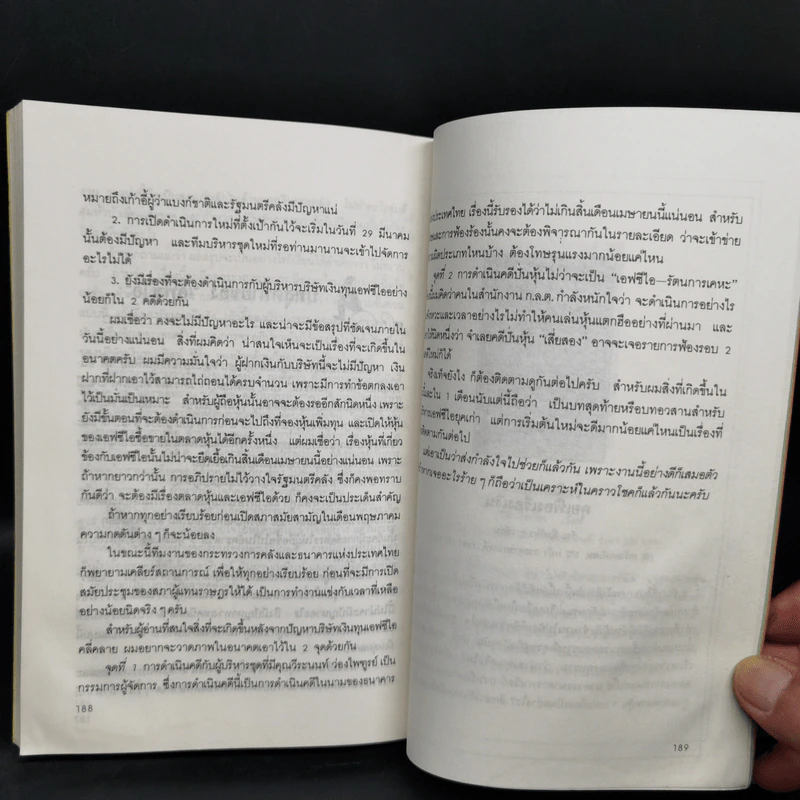 หมายถึงเก้าอี้ผู้ว่าแบงก์ชาติและรัฐมนตรีคลังมีปัญหาแน่
2. การเปิดดำเนินการใหม่ที่ตั้งเป้ากันไว้จะเริ่มในวันที่ 29 มีนาคม
นั้นต้องมีปัญหา และทีมบริหารชุดใหม่ที่รอท่านมานานจะเข้าไปจัดการ
อะไรไม่ได้
3. ยังมีเรื่องที่จะต้องดำเนินการกับผู้บริหารบริษัทเงินทุนเอฟซีไออย่าง
น้อยก็ใน 2 คดีด้วยกัน
ผมเชื่อว่า คงจะไม่มีปัญหาอะไร และน่าจะมีข้อสรุปที่ชัดเจนภายใน
วันนี้อย่างแน่นอน สิ่งที่ผมคิดว่า น่าสนใจเห็นจะเป็นเรื่องที่จะเกิดขึ้นใน
อนาคตครับ ผมมีความมั่นใจว่า ผู้ฝากเงินกับบริษัทนี้จะไม่มีปัญหา เงิน
ฝากที่ฝากเอาไว้สามารถไถ่ถอนได้ครบจำนวน เพราะมีการทำข้อตกลงเอา
ไว้เป็นมั่นเป็นเหมาะ สำหรับผู้ถือหุ้นนั้นอาจจะต้องรออีกสักนิดหนึ่ง เพราะ
ยังมีขั้นตอนที่จะต้องดำเนินการก่อนจะไปถึงที่จองหุ้นเพิ่มทุน และเปิดให้หุ้น
ของเอฟซีไอซื้อขายในตลาดหุ้นได้อีกครั้งหนึ่ง แต่ผมเชื่อว่า เรื่องหุ้นที่เกี่ยว
ข้องกับเอฟซีไอนั้นไม่น่าจะยืดเยื้อเกินสิ้นเดือนเมษายนนี้อย่างแน่นอน เพราะ
ถ้าหากยาวกว่านั้น การอภิปรายไม่ไว้วางใจรัฐมนตรีคลัง ซึ่งก็คงพอทราบ
กันดีว่า จะต้องมีเรื่องตลาดหุ้นและเอฟซีไอด้วย ก็คงจะเป็นประเด็นสำคัญ
ถ้าหากทุกอย่างเรียบร้อยก่อนเปิดสภาสมัยสามัญในเดือนพฤษภาคม
ความกดดันต่าง ๆ ก็จะน้อยลง
ในขณะนี้ทีมงานของกระทรวงการคลังและธนาคารแห่งประเทศไทย
ก็พยายามเคลียร์สถานการณ์ เพื่อให้ทุกอย่างเรียบร้อย ก่อนที่จะมีการเปิด
สมัยประชุมของสภาผู้แทนราษฎรให้ได้ เป็นการทำงานแข่งกับเวลาที่เหลือ
อย่างน้อยนิดจริง ๆ ครับ
สำหรับผู้อ่านที่สนใจสิ่งที่จะเกิดขึ้นหลังจากปัญหาบริษัทเงินทุนเอฟซีไอ
คลี่คลาย ผมอยากจะวาดภาพในอนาคตเอาไว้ใน 2 จุดด้วยกัน
จุดที่ 1 การดำเนินคดีกับผู้บริหารชุดที่มีคุณวีระนนท์ ว่องไพฑูรย์ เป็น
กรรมการผู้จัดการ ซึ่งการดำเนินคดีนี้เป็นการดำเนินคดีในนามของธนาคาร
188
ประเทศไทย เรื่องนี้รับรองได้ว่าไม่เกินสิ้นเดือนเมษายนนี้แน่นอน สำหรับ
และการฟ้องร้องนั้นคงจะต้องพิจารณากันในรายละเอียด ว่าจะเข้าข่าย
ผิดประเภทไหนบ้าง ต้องโทษรุนแรงมากน้อยแค่ไหน
จุดที่ 2 การดำเนินคดีปั่นหุ้นไม่ว่าจะเป็น "เอฟซีไอ—รัตนการเคหะ"
คิดว่าคนในสำนักงาน ก.ล.ต. กำลังหนักใจว่า จะดำเนินการอย่างไร
และเวลาอย่างไรไม่ทำให้คนเล่นหุ้นแตกฮืออย่างที่ผ่านมา และ
หนึ่งว่า จำเลยคดีปั่นหุ้น "เสี่ยสอง" อาจจะเจอรายการฟ้องรอบ 2
ใหม่ก็ได้
จริงเท็จยังไง ก็ต้องติดตามดูกันต่อไปครับ สำหรับผมสิ่งที่เกิดขึ้นใน
และใน 1 เดือนนับแต่นี้ถือว่า เป็นบทสุดท้ายหรือบทอวสานสำหรับ
เอฟซีไอยุคเก่า แต่การเริ่มต้นใหม่จะดีมากน้อยแค่ไหนเป็นเรื่องที่
ติดตามกันต่อไป
เอาเป็นว่าส่งกำลังใจไปช่วยก็แล้วกัน เพราะงานนี้อย่างดีก็เสมอตัว
เจออะไรร้าย ๆ ก็ถือว่าเป็นเคราะห์ในคราวโชคก็แล้วกันนะครับ
189